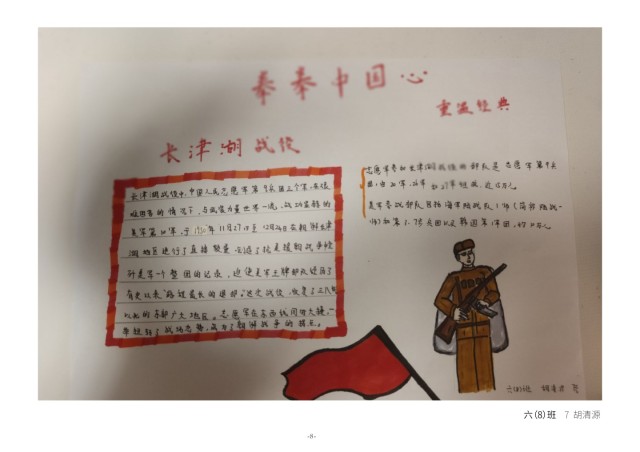 拳拳中国心
重温经典
长津湖战役
长津湖战役中,中国人民志愿军第9兵团三个军,在极
艰困苦的情况下,与武器力量世界一流、战功显赫的
美军第10军,于1950年11月27日至12月24日在朝鲜长津
湖地区进行了直接较量
歼美军一个整团的记录,迫使美军王牌部队经历了
有史以来"路程最长的退却"。这次战役,收复了三八线
以北的东部广大地区。志愿军在东西线同时大捷,一
举扭转了战场态势,成为了朝鲜战争的拐点。
志愿军参加长津湖战役的部队是志愿军第十兵
团:由20军、26军和27军组成,近15万人
美军参战部队包括海军陆战队1师(简称陆战一
师)和第7
六(8)班 胡清源
六(8)班 7 胡清源
-8-